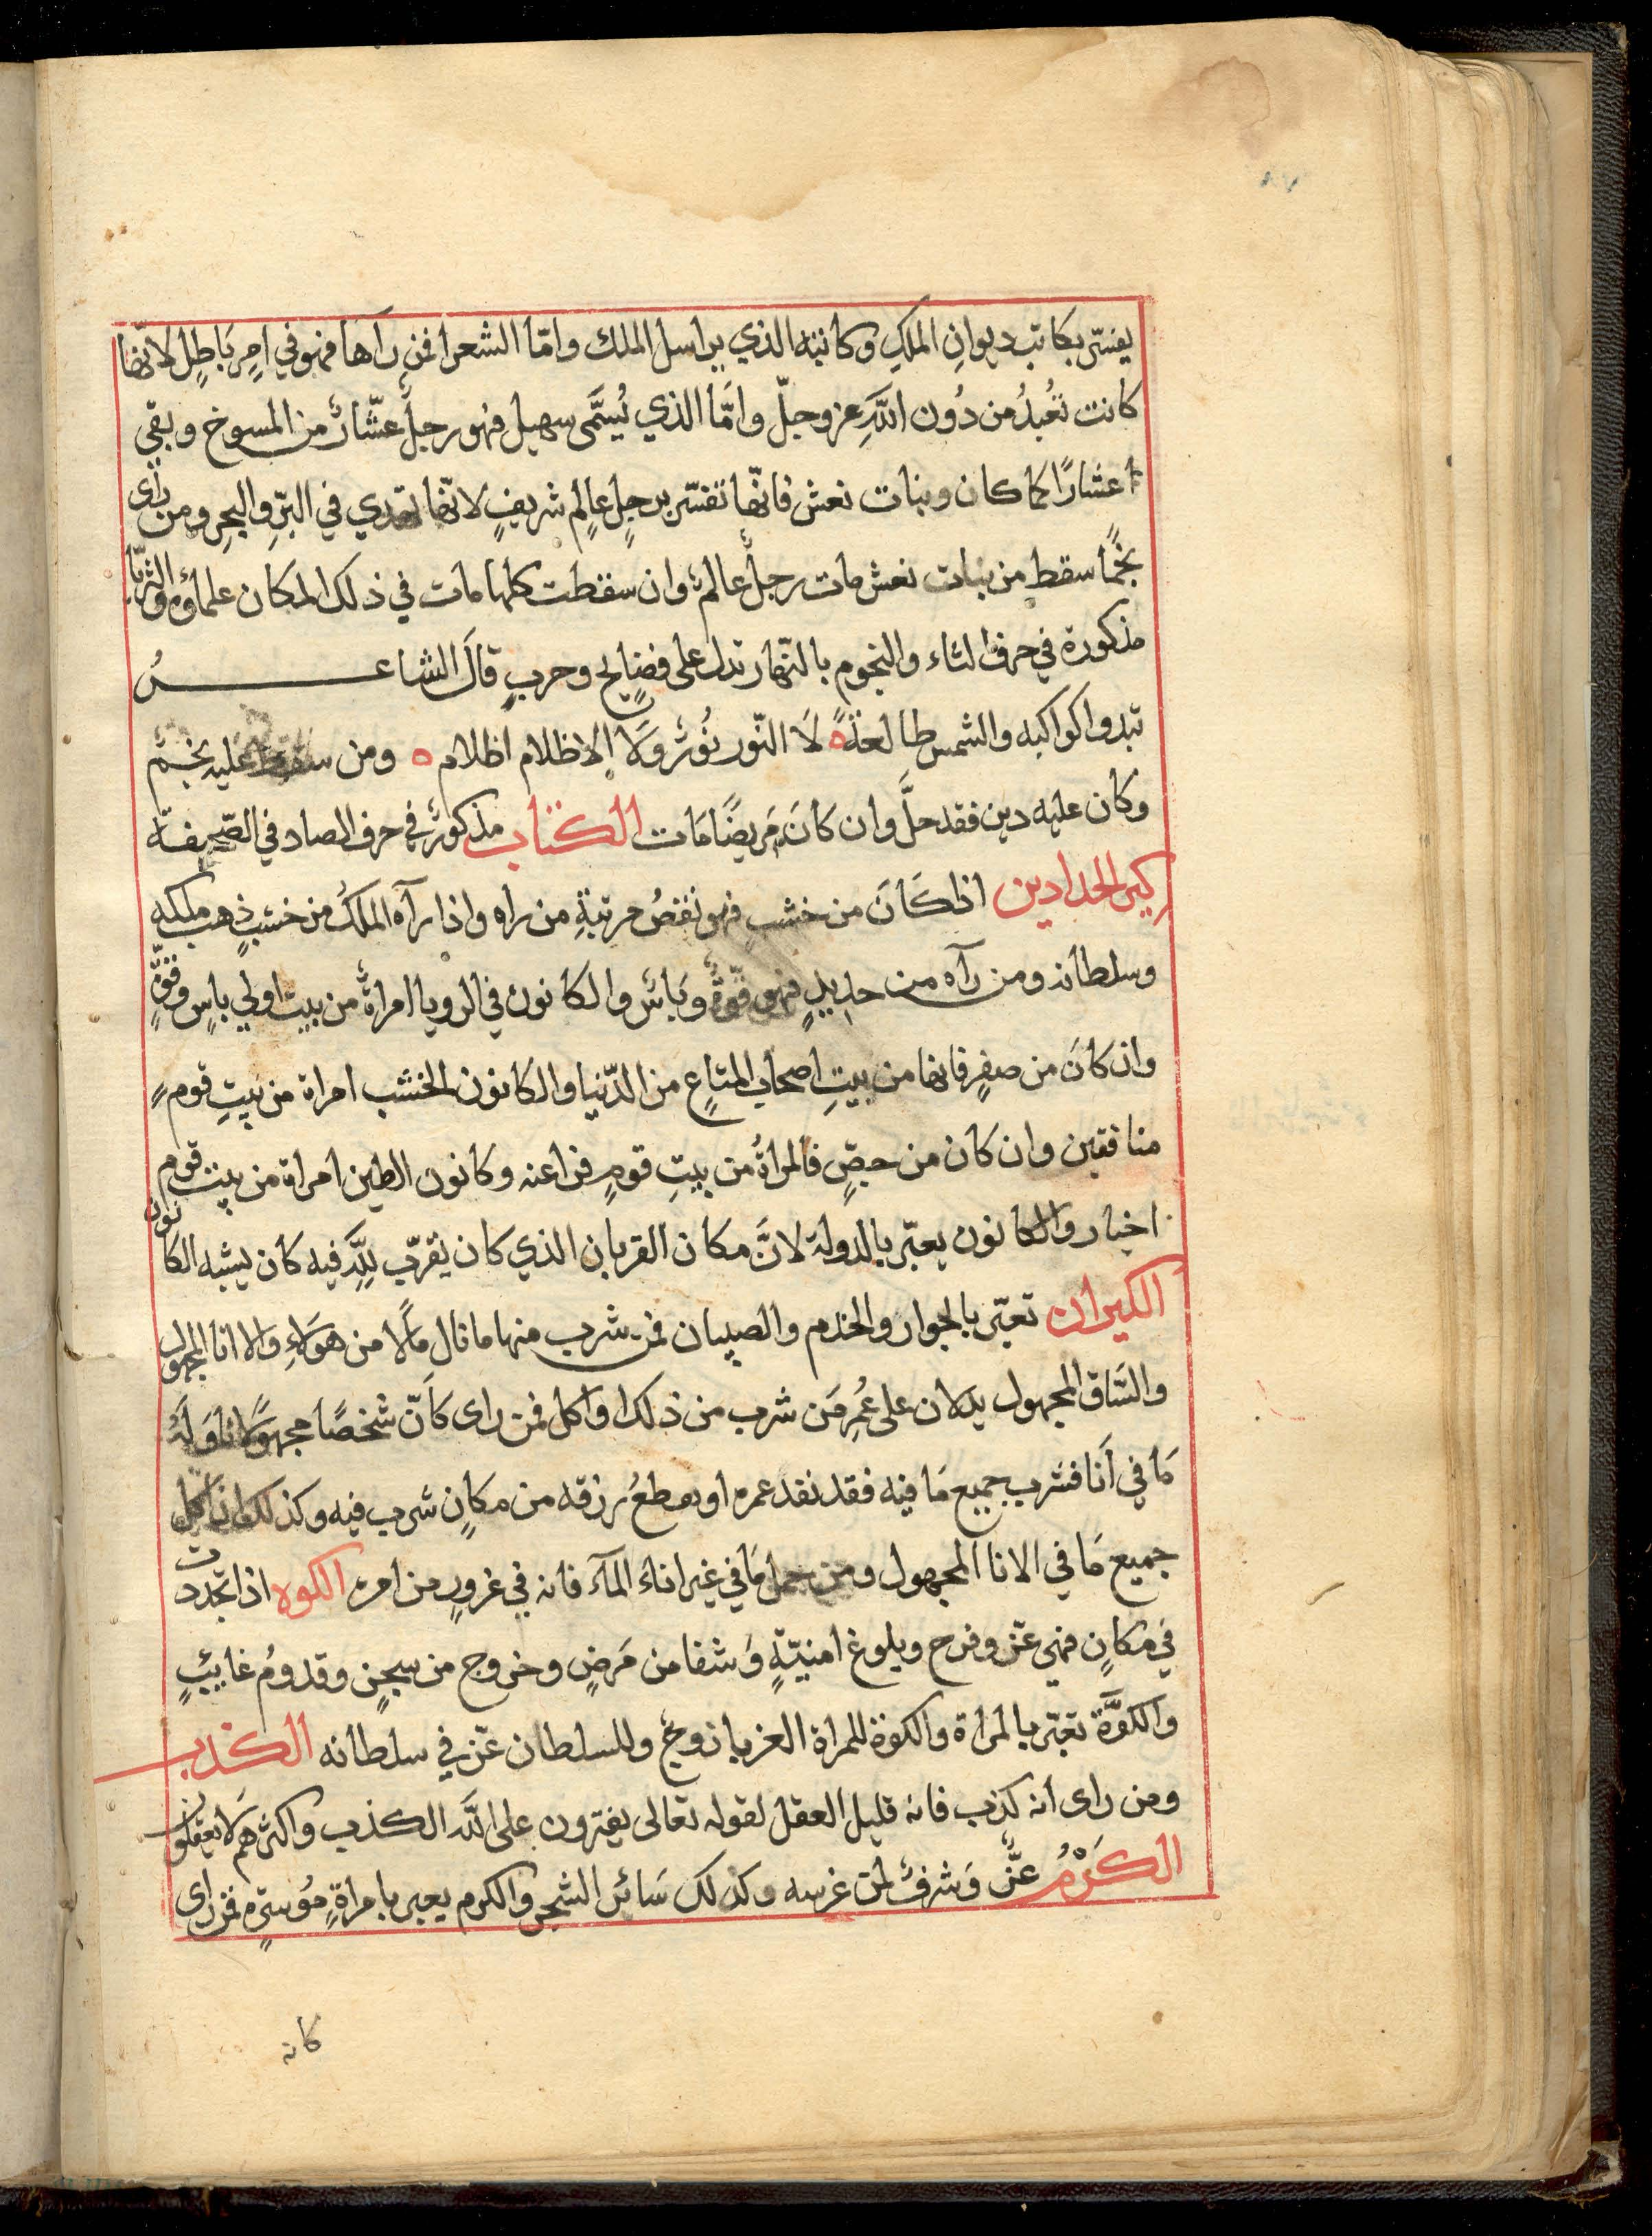 يفسّر بكاتب ديوانِ الملكِ وكاتبه الذي يراسل الملك وامّا الشعرا فمن رآهَا فهو في امرٍ بَاطِلٍ لانّها
كانت تُعْبدُ من دُون اللهِ عز وجلّ وامَّا الذي يُسَمَّى سهيل فهو رجلٌ عشّارٌ من المسوخ وبقي
اعشارًا كما كان وبنات نعش فانّها تفسّر برجلٍ عالمٍ شريفٍ لانّها تهدي في البرِّ والبحرِ ومن رأى
نجمًا سقط من بنات نعش مات رجلٌ عالمٌ وان سقطت كلها مات في ذلك المكان علماؤه والثريّا
مذكورة في حرف الثاء والنجوم بالنّهار تدل على فضايح وحربٍ قالَ الشاعرُ
تبدوا كواكبه والشمس طالعةً ه لَا النّور نُورٌ ولَا الاظلام اظلام ه ومن سقط عليه نجمٌ
وكان عليه دين فقد حلَّ وان كَانَ مَريضًا مَات الكتاب مذكورٌ في حرف الصاد في الصّحيفة
كير الحدادين اذا كَانَ من خشبٍ فهو نقصُ مرتبةِ من راه واذا رآه الملكُ من خشبٍ ذهب ملكه
وسلطانه ومن رآه من حديدٍ فهو قوّةٌ وبَاسٌ والكانون في الرويا امراةٌ من بيت اولي باسٍ وقوّةٍ
وان كانَ من صفرٍ فانها من بيتِ اصحاب المتاعِ من الدّنيا والكانون الخشب امراة من بيتِ قومٍ
منافقين وان كان من جصٍّ فالمراةُ من بيتِ قومٍ فراعنه وكانون الطين امراة من بيت قوم
اخيار والكانون يعبّر بالدولة لانَّ مكان القربان الذي كان يقرّب لِلّهِ فيه كان يشبه الكانون
الكيزان تعبّر بالجوار والخدم والصبيان فمن شرب منها ما نال مالًا من هولاءِ والانا المجهول
والسّاق المجهول يدلان على عُمرِ مَن شرب من ذلك او اكل فمن راى كَانّ شخصًا مجهولًا ناوَلَهُ
مَا في اَنا فشرب جميع مَا فيه فقد نفد عمره او يقطعُ رزقه من مكانٍ شرب فيه وكذلك ان اكل
جميع مَا في الانا المجهول ومن حمل مَا في غير اناء المآء فانه في غرورٍ من امره الكوه اذا تجددت
في مَكانٍ فهي عزّ وفرح وبلوغ امنيّةٍ وَشفا من مَرضٍ وخروج من سجنٍ وقدومُ غايبٍ
والكُوَّة تعبّر بالمراة والكوة للمراة العزبا زوجٌ وللسلطان عزّ في سلطانه الكذب
ومن راى انه كذب فانه قليل العقل لقوله تعالى يفترون على اللَّه الكذب واكثرهم لَا يعقلون
الكَرْمُ عزٌّ وَشرفٌ لمن غرسه وكذلك سَائر الشجر والكرم يعبر بامراةٍ مُوسرةٍ فمن راى
كانه